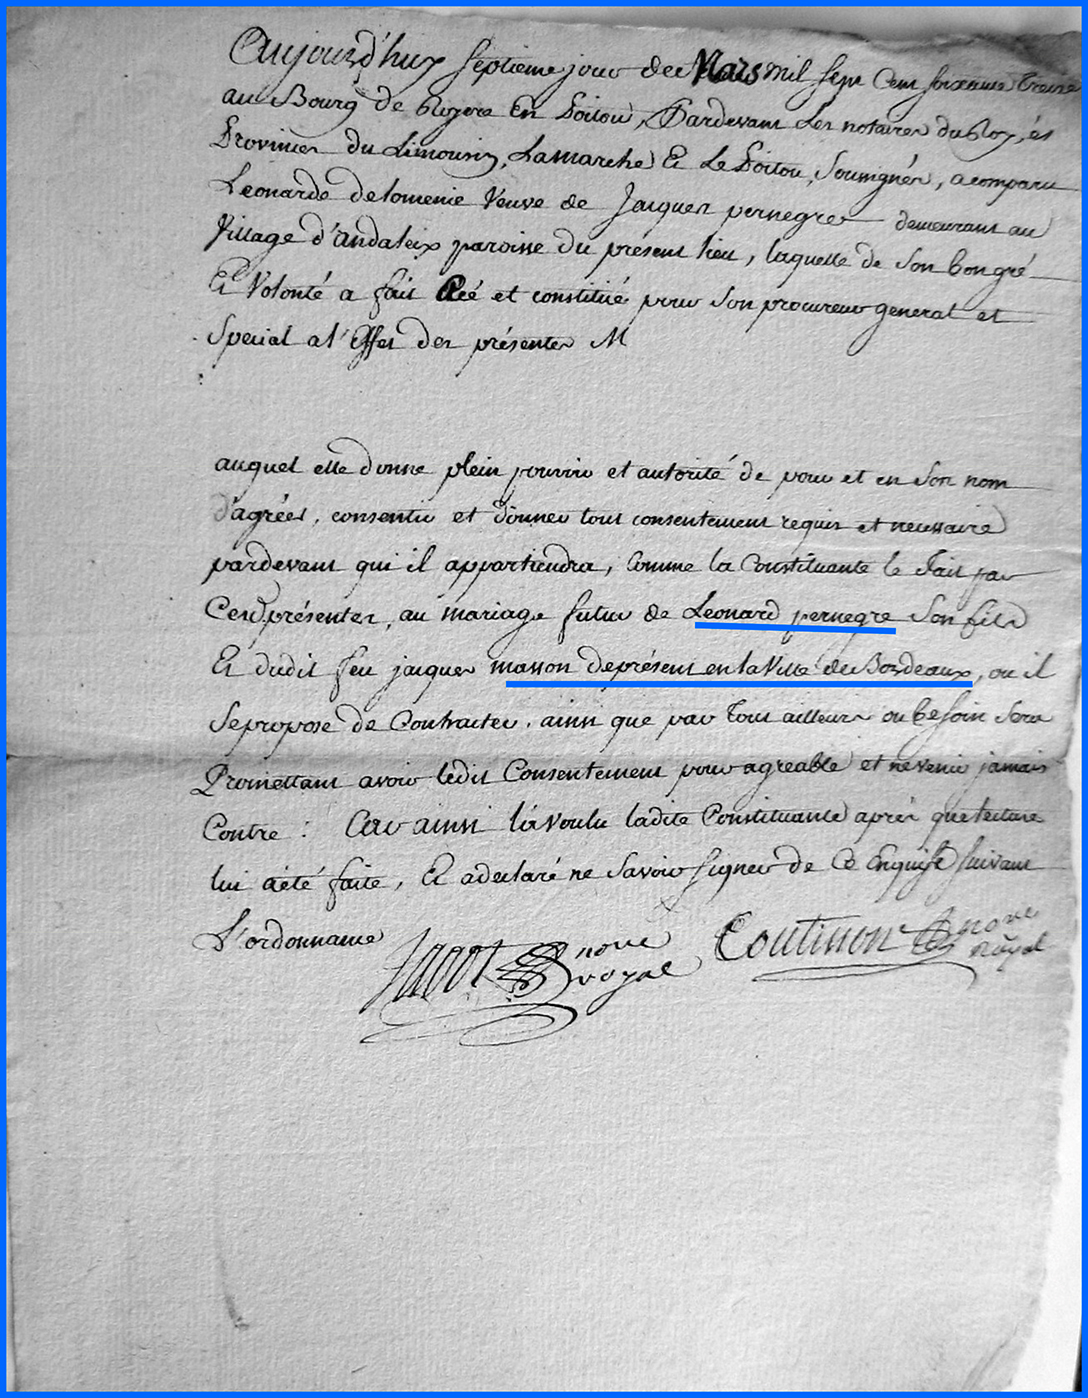 Aujourd'huy septieme jour de Mars mil sept Cent soixante Treize
au Bourg de Royere En Poitou, Pardevant Les notaires du Roy, és
Provinces du Limousin, Lamarche Et Le Poitou, Soussignés, a comparu
Leonarde delomenie Veuve de Jacques pernegre demeurant au
Village d'andaleix paroisse du présent lieu, laquelle de Son bon gré
Et Volonté a fait Créé et constitué pour Son procureur general et
Special a l'Effet des présentes M
auquel elle donne plein pouvoir et autorité de pour et en Son nom
d'agréer, consentir et donner tout consentement requis et necessaire
pardevant qui il appartiendra, Comme la Constituante le Fait par
Ces présentes, au mariage futur de Leonard pernegre Son fils
Et dudit feu jacques masson deprésent en la Ville de Bordeaux, ou il
Se propose de Contracter, ainsi que par Tout ailleurs ou besoin Sera
Promettant avoir ledit Consentement pour agreable et ne venir jamais
Contre : Car ainsi l'a Voulu ladite Constituante après que lecture
lui a été faite, Et a declaré ne Savoir signer de Ce Enquise suivant
L'ordonnance
nore royal Coutisson nore royal